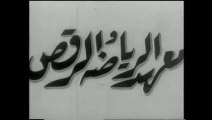 معهد الرياضة والرقص